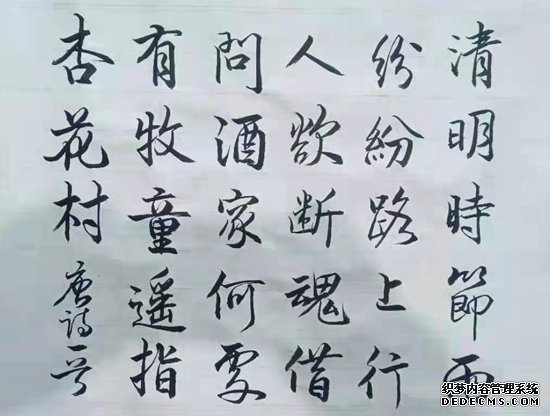 清明時節雨
纷紛路上行
人欲断魂借
問酒家何處
有牧童遥指
杏花村
唐詩一首
织梦内容管理系统
DEDECMS.COM